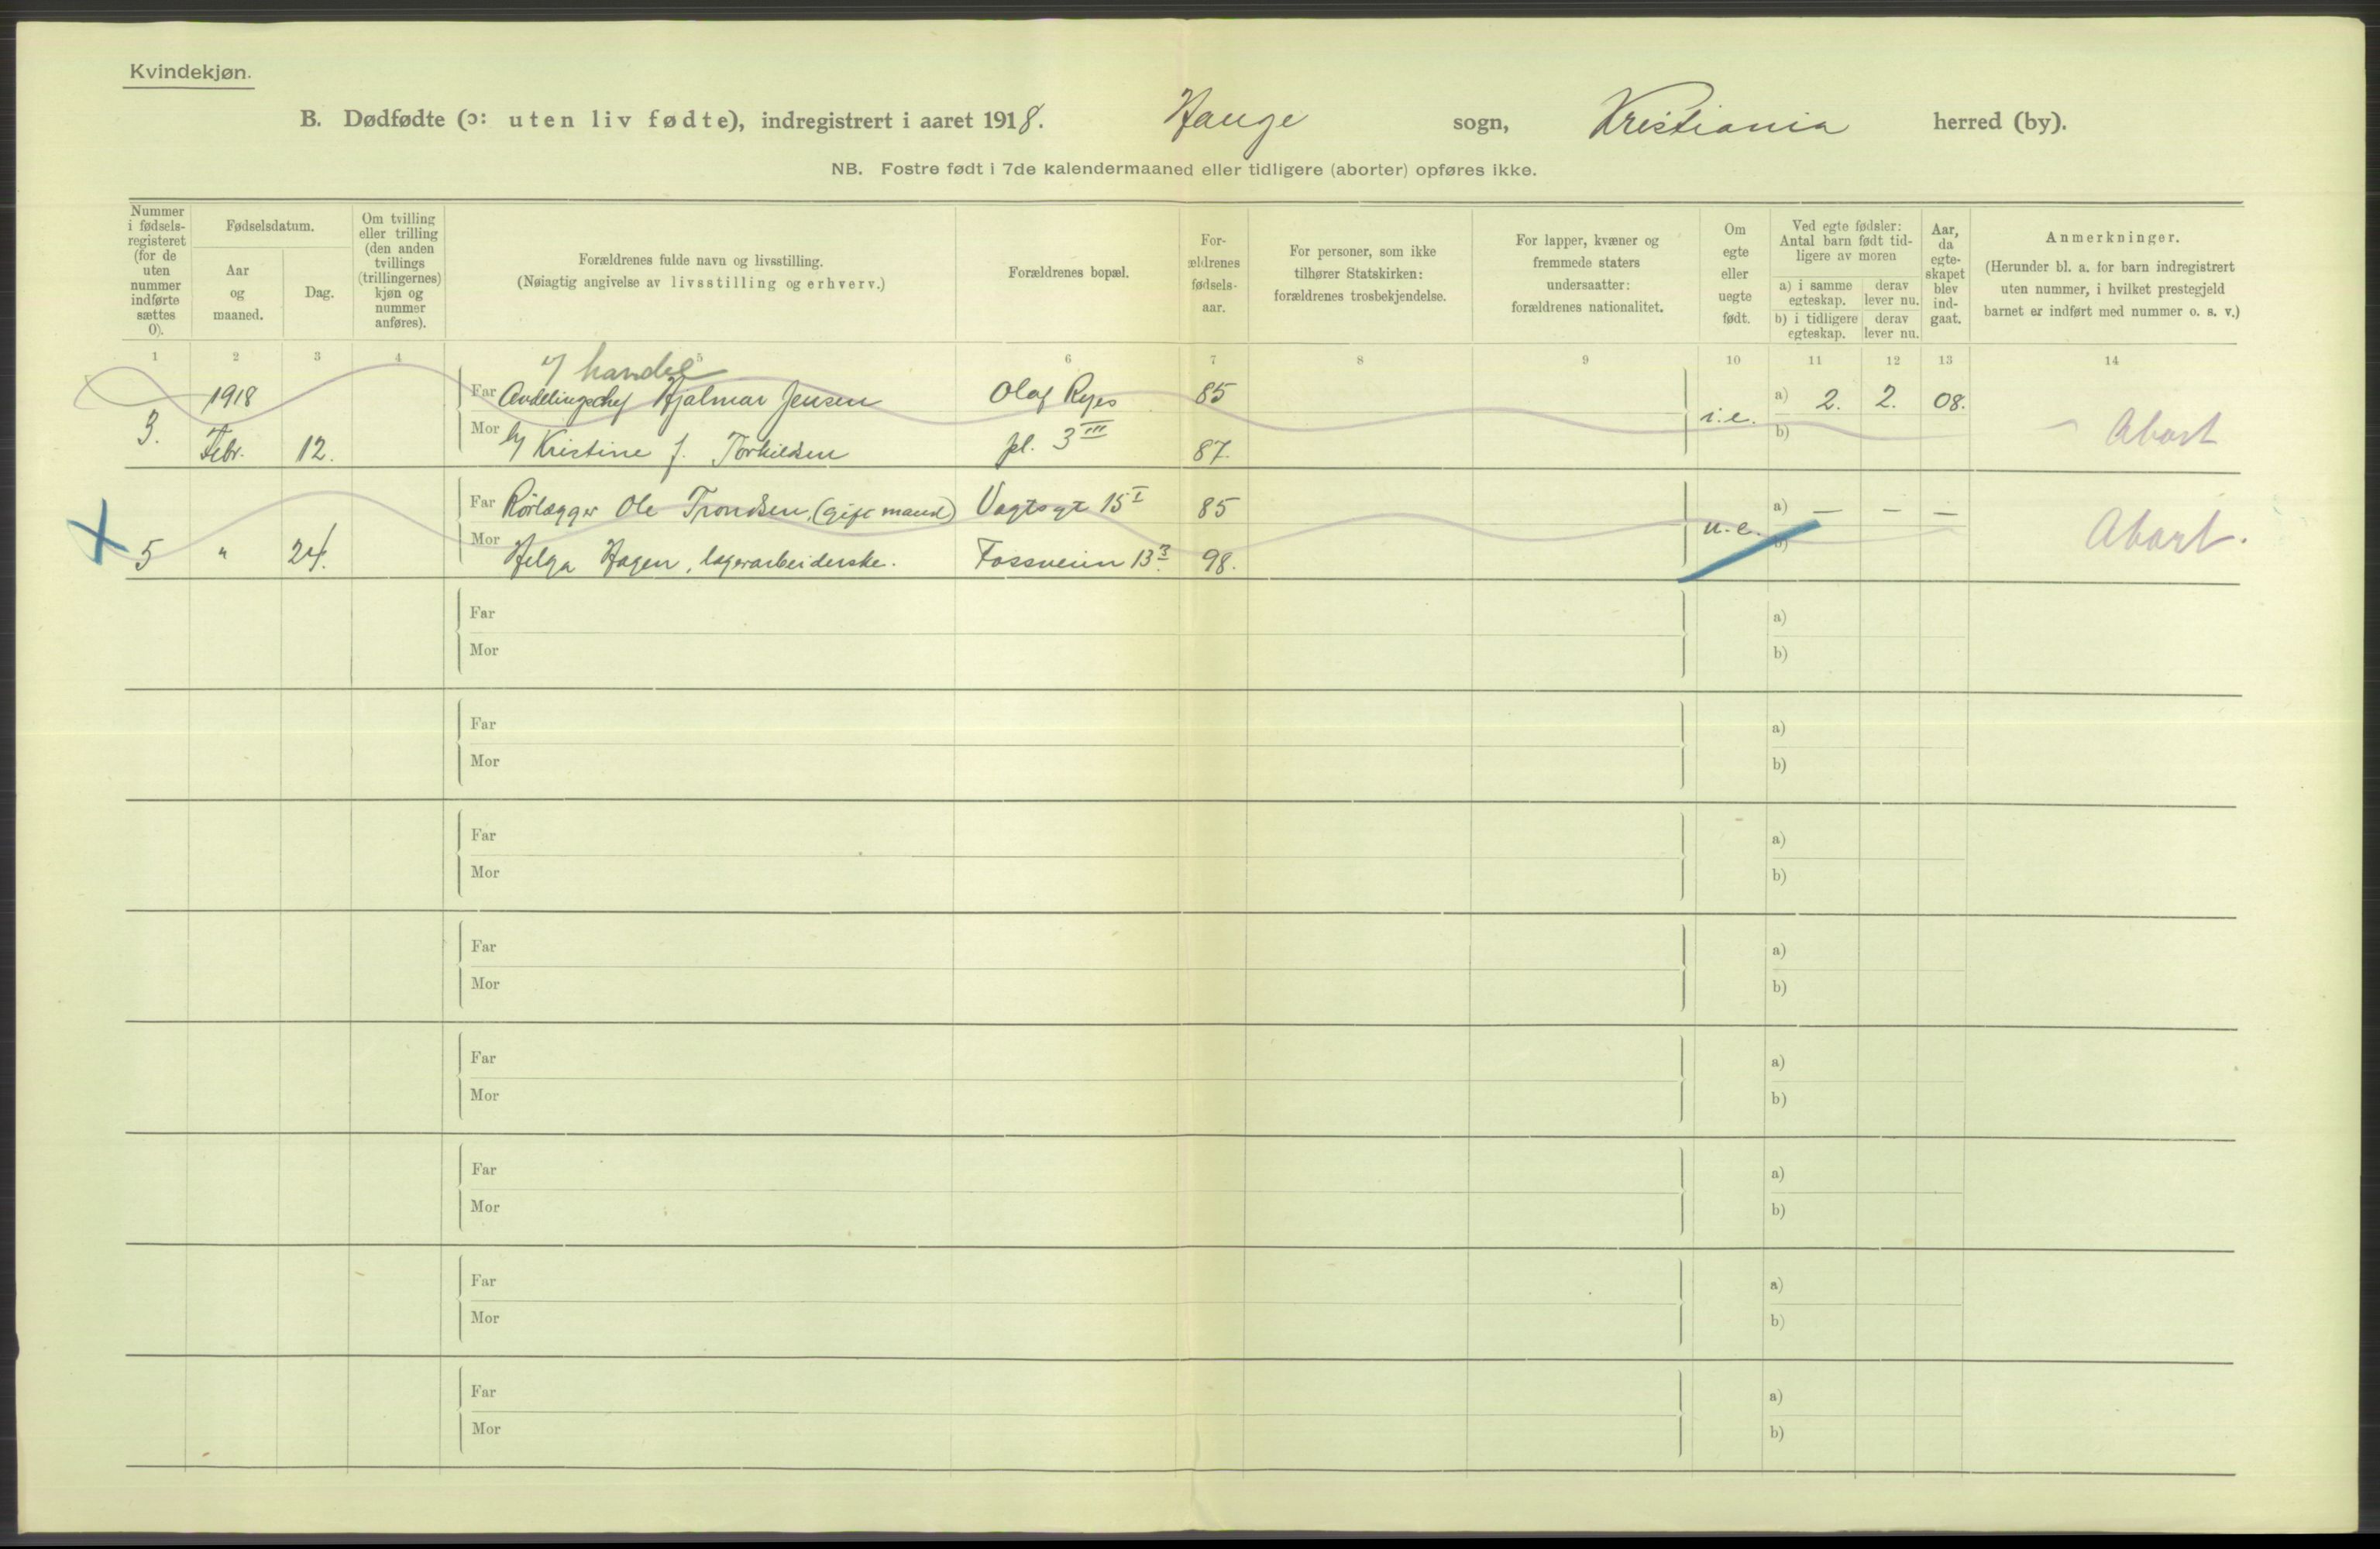 Kvindekjøn.
B. Dødfødte (ɔ: uten liv fødte), indregistrert i aaret 1918. Hauge sogn, Kristiania herred (by).
NB. Fostre født i 7de kalendermaaned eller tidligere (aborter) opføres ikke.
Nummer i fødselsregisteret (for de uten nummer indførte sættes 0).
Fødselsdatum.
Aar og maaned.
Dag.
Om tvilling eller trilling (den anden tvillings (trillingernes) kjøn og nummer anføres).
Forældrenes fulde navn og livsstilling.
(Nøiagtig angivelse av livsstilling og erhverv.)
Forældrenes bopæl.
Forældrenes fødselsaar.
For personer, som ikke tilhører Statskirken: forældrenes trosbekjendelse.
For lapper, kvæner og fremmede staters undersaatter: forældrenes nationalitet.
Om egte eller uegte født.
Ved egte fødsler: Antal barn født tidligere av moren
a) i samme egteskap.
derav lever nu.
b) i tidligere egteskap.
derav lever nu.
Aar, da egteskapet blev indgaat.
Anmerkninger.
(Herunder bl. a. for barn indregistrert uten nummer, i hvilket prestegjeld barnet er indført med nummer o. s. v.)
1 2 3 4 5 6 7 8 9 10 11 12 13 14
handel
1918 Far Avdelingschef Hjalmar Jensen Olaf Ryes 85 a) 2. 2. 08.
3. Febr. 12. Mor Kristine J. Torkildsen pl. 3 III 87. i.e. b) Abort
Far Rörlægger Ole Trondsen, (gift mand) Vogtsgt 15 I 85 a) — — —
5 " 24. Mor Helga Hagen, lagerarbeiderske. Fossveien 13 3. 98. u.e. b) Abort.
Far a)
Mor b)
Far a)
Mor b)
Far a)
Mor b)
Far a)
Mor b)
Far a)
Mor b)
Far a)
Mor b)
Far a)
Mor b)
Far a)
Mor b)